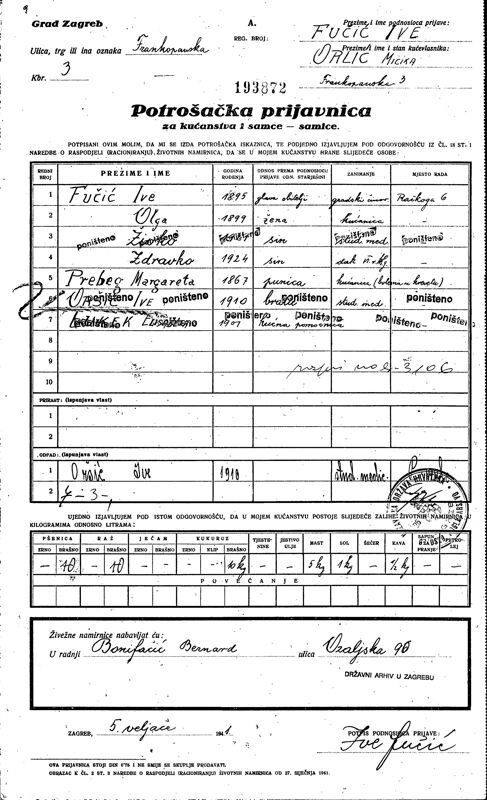 9
Grad Zagreb
A.
Prezime i ime podnosioca prijave:
Ulica, trg ili ina oznaka Frankopanska
REG. BROJ:
FUČIĆ IVE
Prezime i ime i stan kućevlasnika:
Kbr. 3
ORLIĆ MICIKA
193872
Frankopanska 3
Potrošačka prijavnica
za kućanstva i samce — samice.
POTPISANI OVIM MOLIM, DA MI SE IZDA POTROŠAČKA ISKAZNICA, TE PODJEDNO IZJAVLJUJEM POD ODGOVORNOŠĆU IZ ČL. 18 ST. 1
NAREDBE O RASPODJELI (RACIONIRANJU) ŽIVOTNIH NAMIRNICA, DA SE U MOJEM KUĆANSTVU HRANE SLIJEDEĆE OSOBE:
REDNI BROJ PREZIME I IME GODINA RODENJA ODNOS PREMA PODNOSIOCU PRIJAVE ODN. STARJEŠINI ZANIMANJE MJESTO RADA
1 Fučić Ive 1895 gradski Račkoga 6
2 Olga 1899 žena kućanica –
3 poništeno sin stud med. poništeno
4 Zdravko 1924 sin –
5 Prebeg Margareta 1867 punica kućanica
6 Oršić Ive poništeno poništeno 1910 poništeno stud. med. poništeno
7 poništeno poništeno kućna pomoćnica poništeno poništeno
8
9
10
PRIRAST: (ispunjava vlast)
1
2
OTPAD: (ispunjava vlast)
1 Oršić Ive 1910 stud. medic.
2 7-3-
UJEDNO IZJAVLJUJEM POD ISTOM ODGOVORNOŠĆU, DA U MOJEM KUĆANSTVU POSTOJE SLIJEDEĆE ZALIHE ŽIVOTNIH NAMIRNICA U
KILOGRAMIMA ODNOSNO LITRAMA:
PŠENICA RAŽ JEČAM KUKURUZ TJESTENINE JESTIVO ULJE MAST SOL ŠEĆER KAVA SAPUN ZA PRANJE PETROLEJ
ZRNO BRAŠNO ZRNO BRAŠNO ZRNO BRAŠNO ZRNO KLIP BRAŠNO
– 10 – 10 – – – – 10 kg – – 5 kg 1 kg – ½ kg – –
POVEĆANJE
Živežne namirnice nabavljat ću:
U radnji Bonifačić Bernard ulica Ozaljska 90
DRŽAVNI ARHIV U ZAGREBU
ZAGREB, 5. veljače 1941
POTPIS PODNOSIOCA PRIJAVE:
Ive Fučić
OVA PRIJAVNICA STOJI DIN 0'75 I NE SMIJE SE SKUPLJE PRODAVATI.
OBRAZAC K ČL. 2 ST. 3 NAREDBE O RASPODJELI (RACIONIRANJU) ŽIVOTNIH NAMIRNICA OD 27. SIJEČNJA 1941.